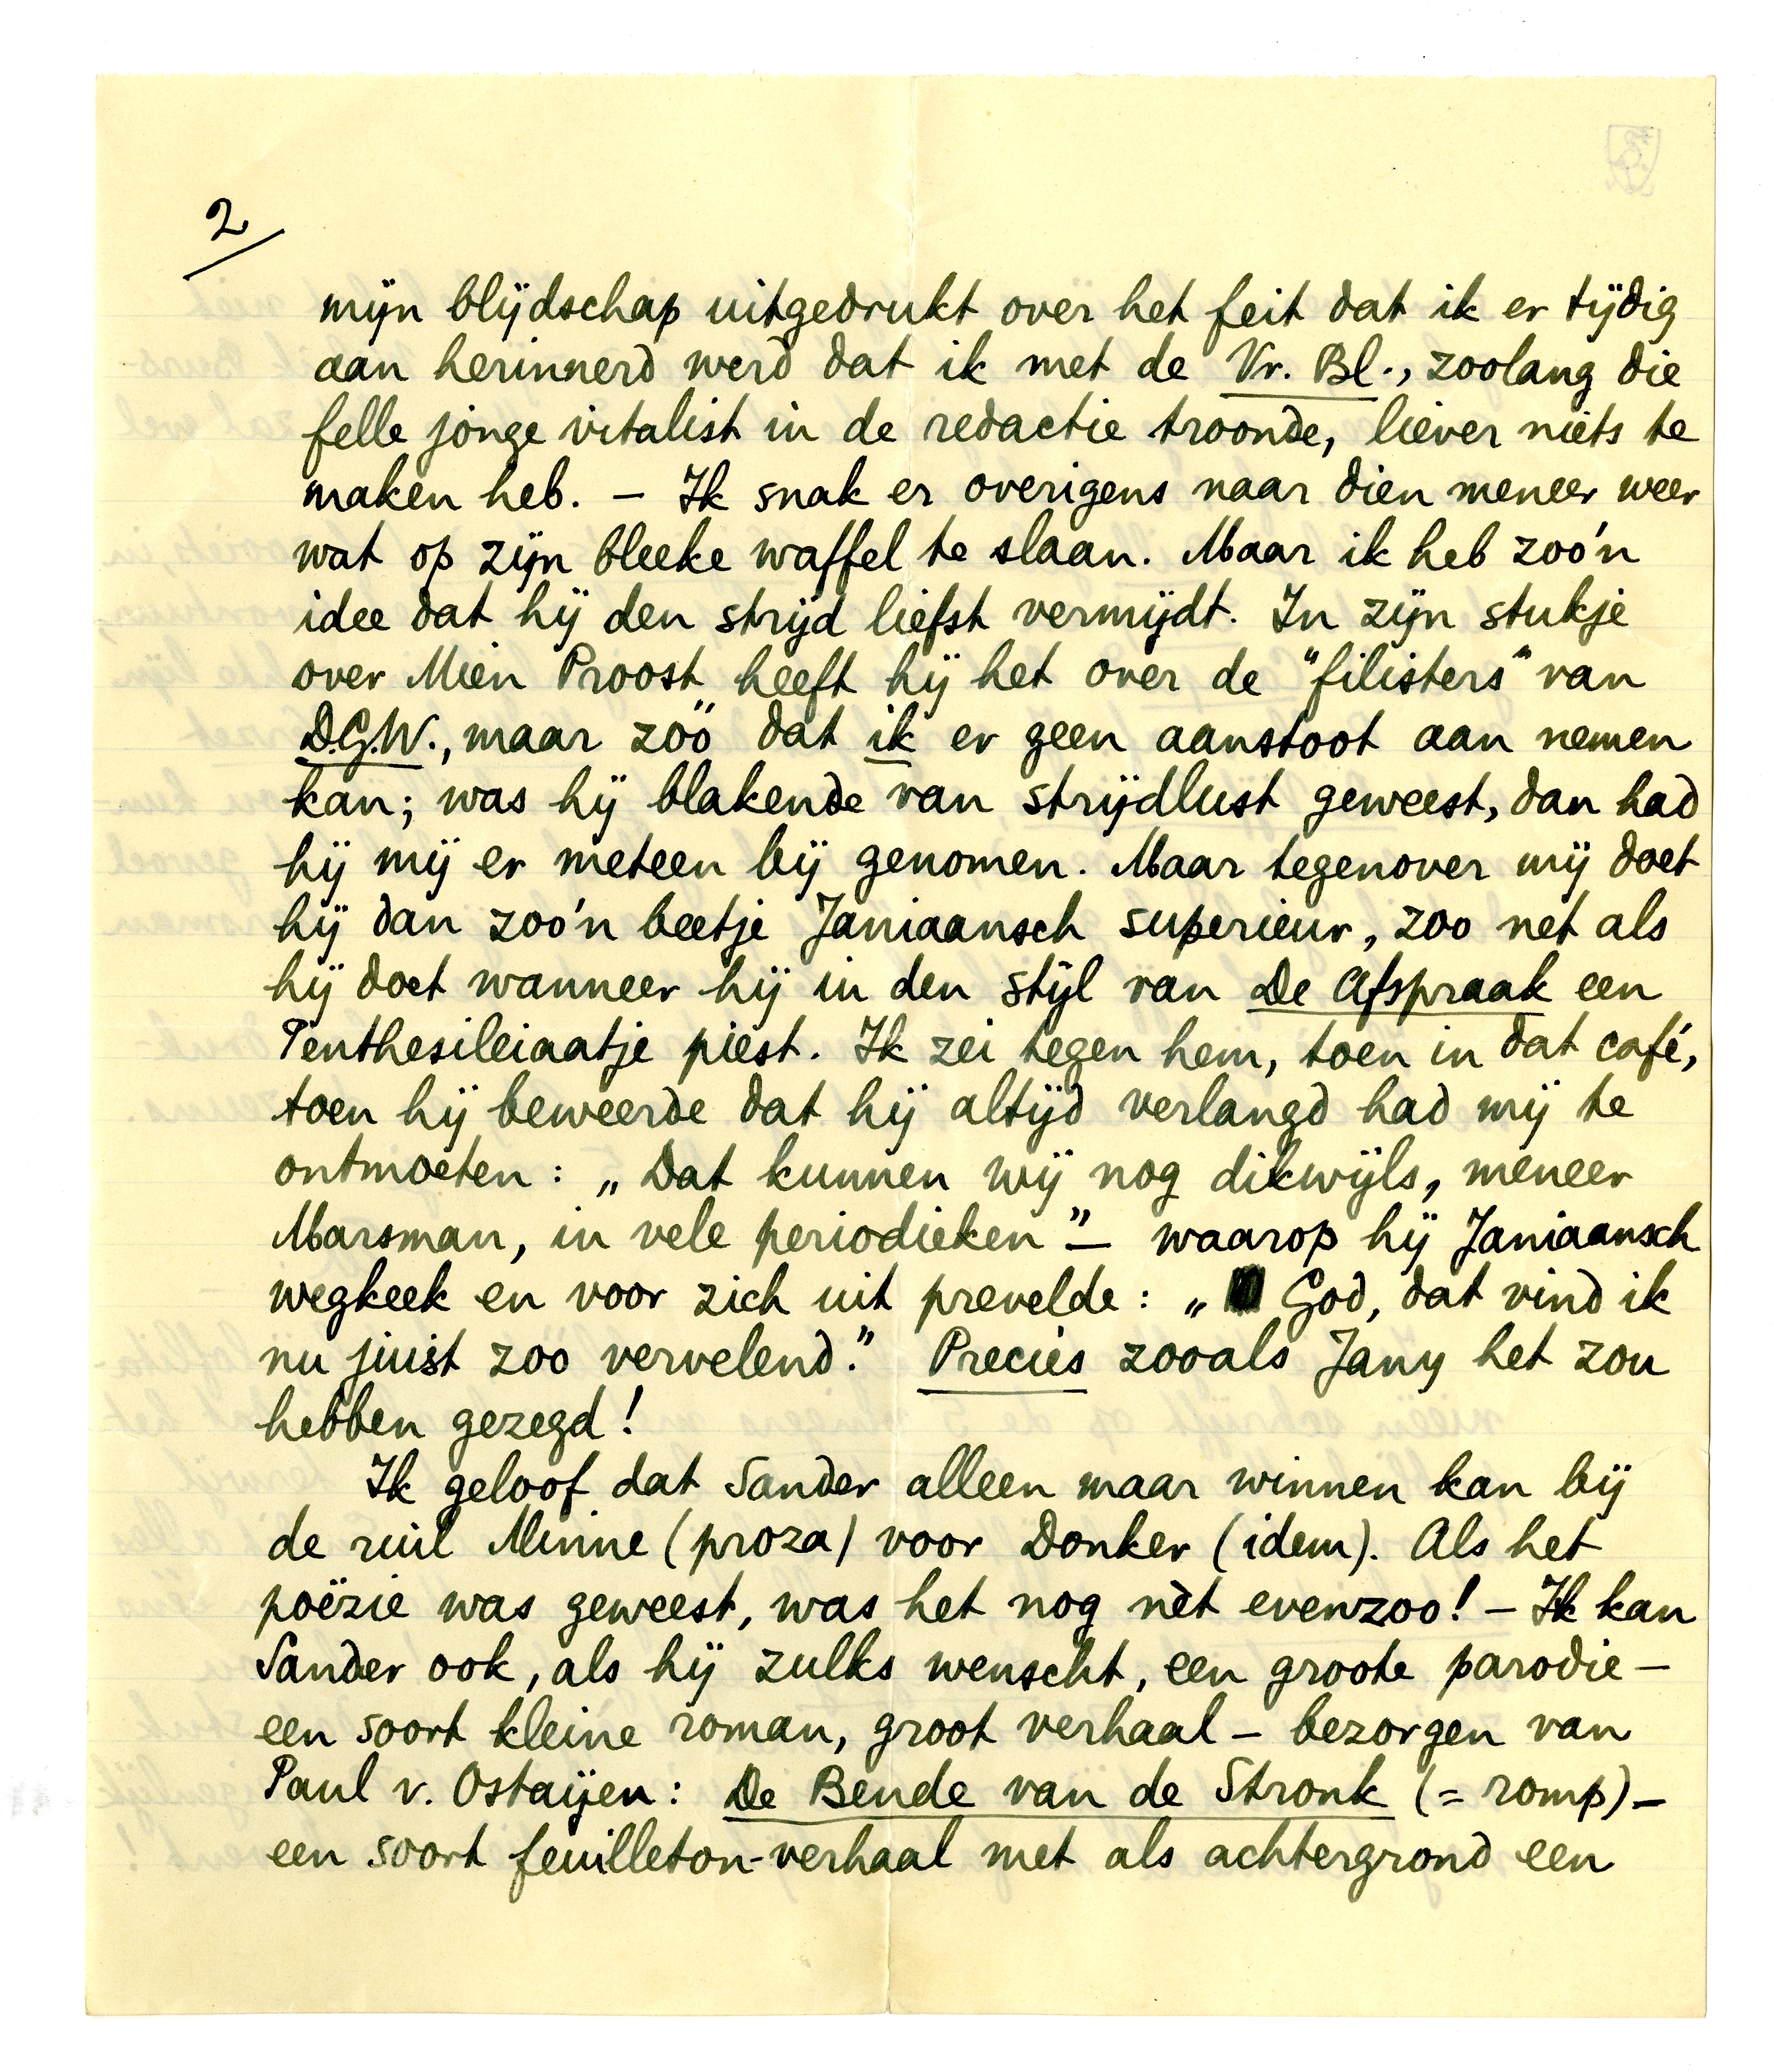 2
mijn blijdschap uitgedrukt over het feit dat ik er tijdig
aan herinnerd werd dat ik met de Vr. Bl., zoolang die
felle jonge vitalist in de redactie troonde, liever niets te
maken heb. – Ik snak er overigens naar dien meneer weer
wat op zijn bleeke waffel te slaan. Maar ik heb zoo'n
idee dat hij den strijd liefst vermijdt. In zijn stukje
over Mien Proost heeft hij het over de "filisters" van
D.G.W., maar zóó dat ik er geen aanstoot aan nemen
kan; was hij blakende van strijdlust geweest, dan had
hij mij er meteen bij genomen. Maar tegenover mij doet
hij dan zoo'n beetje Janiaansch superieur, zoo net als
hij doet wanneer hij in den stijl van De Afspraak een
Penthesileiaatje piest. Ik zei tegen hem, toen in dat café,
toen hij beweerde dat hij altijd verlangd had mij te
ontmoeten: „Dat kunnen wij nog dikwijls, meneer
Marsman, in vele periodieken" – waarop hij Janiaansch
wegkeek en voor zich uit prevelde: „God, dat vind ik
nu juist zoo vervelend." Precies zooals Jany het zou
hebben gezegd!
Ik geloof dat Sander alleen maar winnen kan bij
de ruil Minne (proza) voor Donker (idem). Als het
poëzie was geweest, was het nog nèt evenzoo! – Ik kan
Sander ook, als hij zulks wenscht, een groote parodie –
een soort kleine roman, groot verhaal – bezorgen van
Paul v. Ostaijen: De Bende van de Stronk (= romp) –
een soort feuilleton-verhaal met als achtergrond een